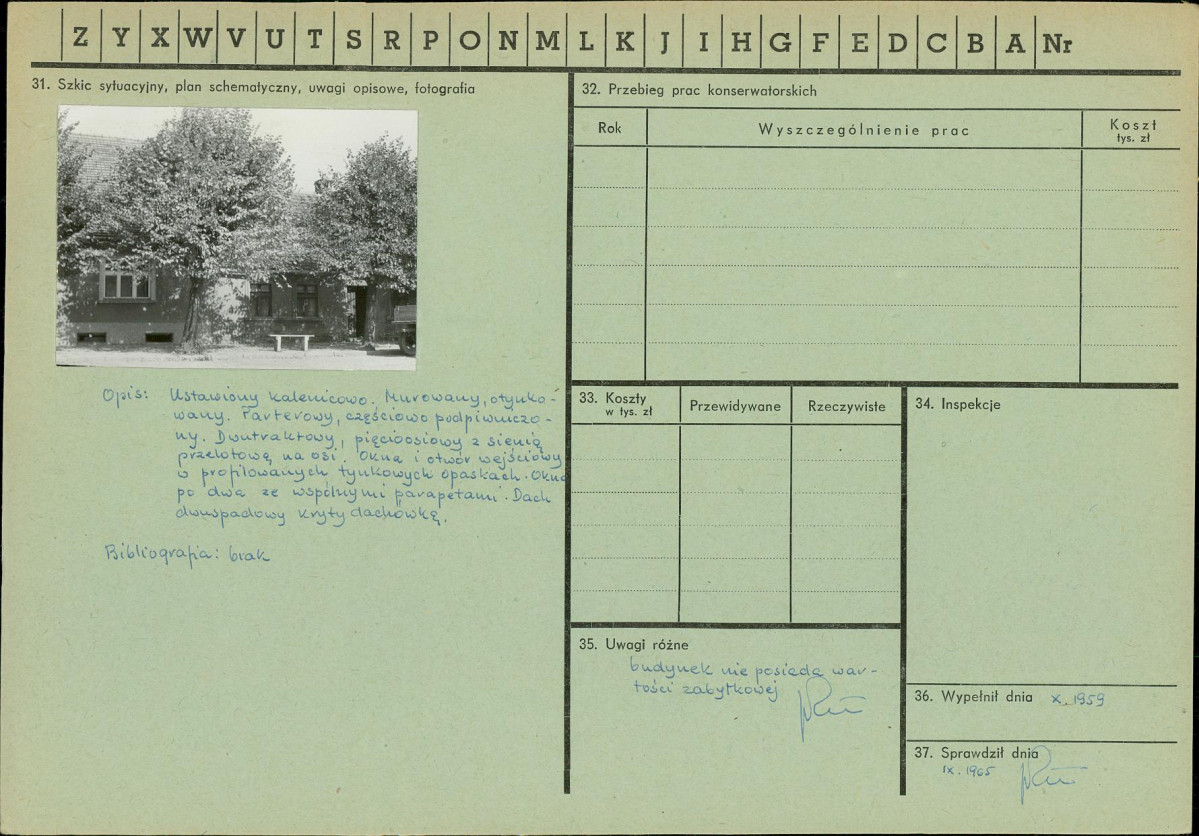 Z Y X W V U T S R P O N M L K J I H G F E D C B A Nr
31. Szkic sytuacyjny, plan schematyczny, uwagi opisowe, fotografia
Opis: Ustawiony kalenicowo. Murowany, otynko-
wany. Parterowy, częściowo podpiwniczo-
ny. Dwutraktowy, pięcioosiowy z sienią
przelotową na osi. Okna i otwór wejściowy
w profilowanych tynkowych opaskach. Okna
po dwa ze wspólnymi parapetami. Dach
dwuspadowy kryty dachówką.
Bibliografia: brak
32. Przebieg prac konserwatorskich
Rok
Wyszczególnienie prac
Koszt
tys. zł
33. Koszty
w tys. zł
Przewidywane
Rzeczywiste
34. Inspekcje
35. Uwagi różne
budynek nie posiada war-
tości zabytkowej
36. Wypełnił dnia X. 1959
37. Sprawdził dnia
IX. 1965